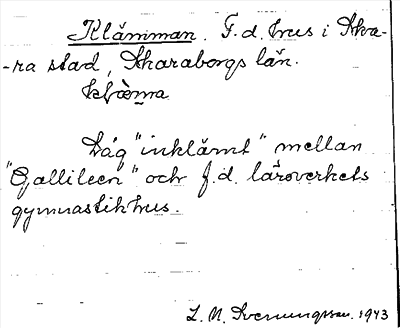 Klämman. F.d. hus i Ska-
-ra stad, Skaraborgs län.
Låg "inklämt" mellan
"Gallileen" och f.d. läroverkets
gymnastikhus.
L. M. Svenungsson. 1943